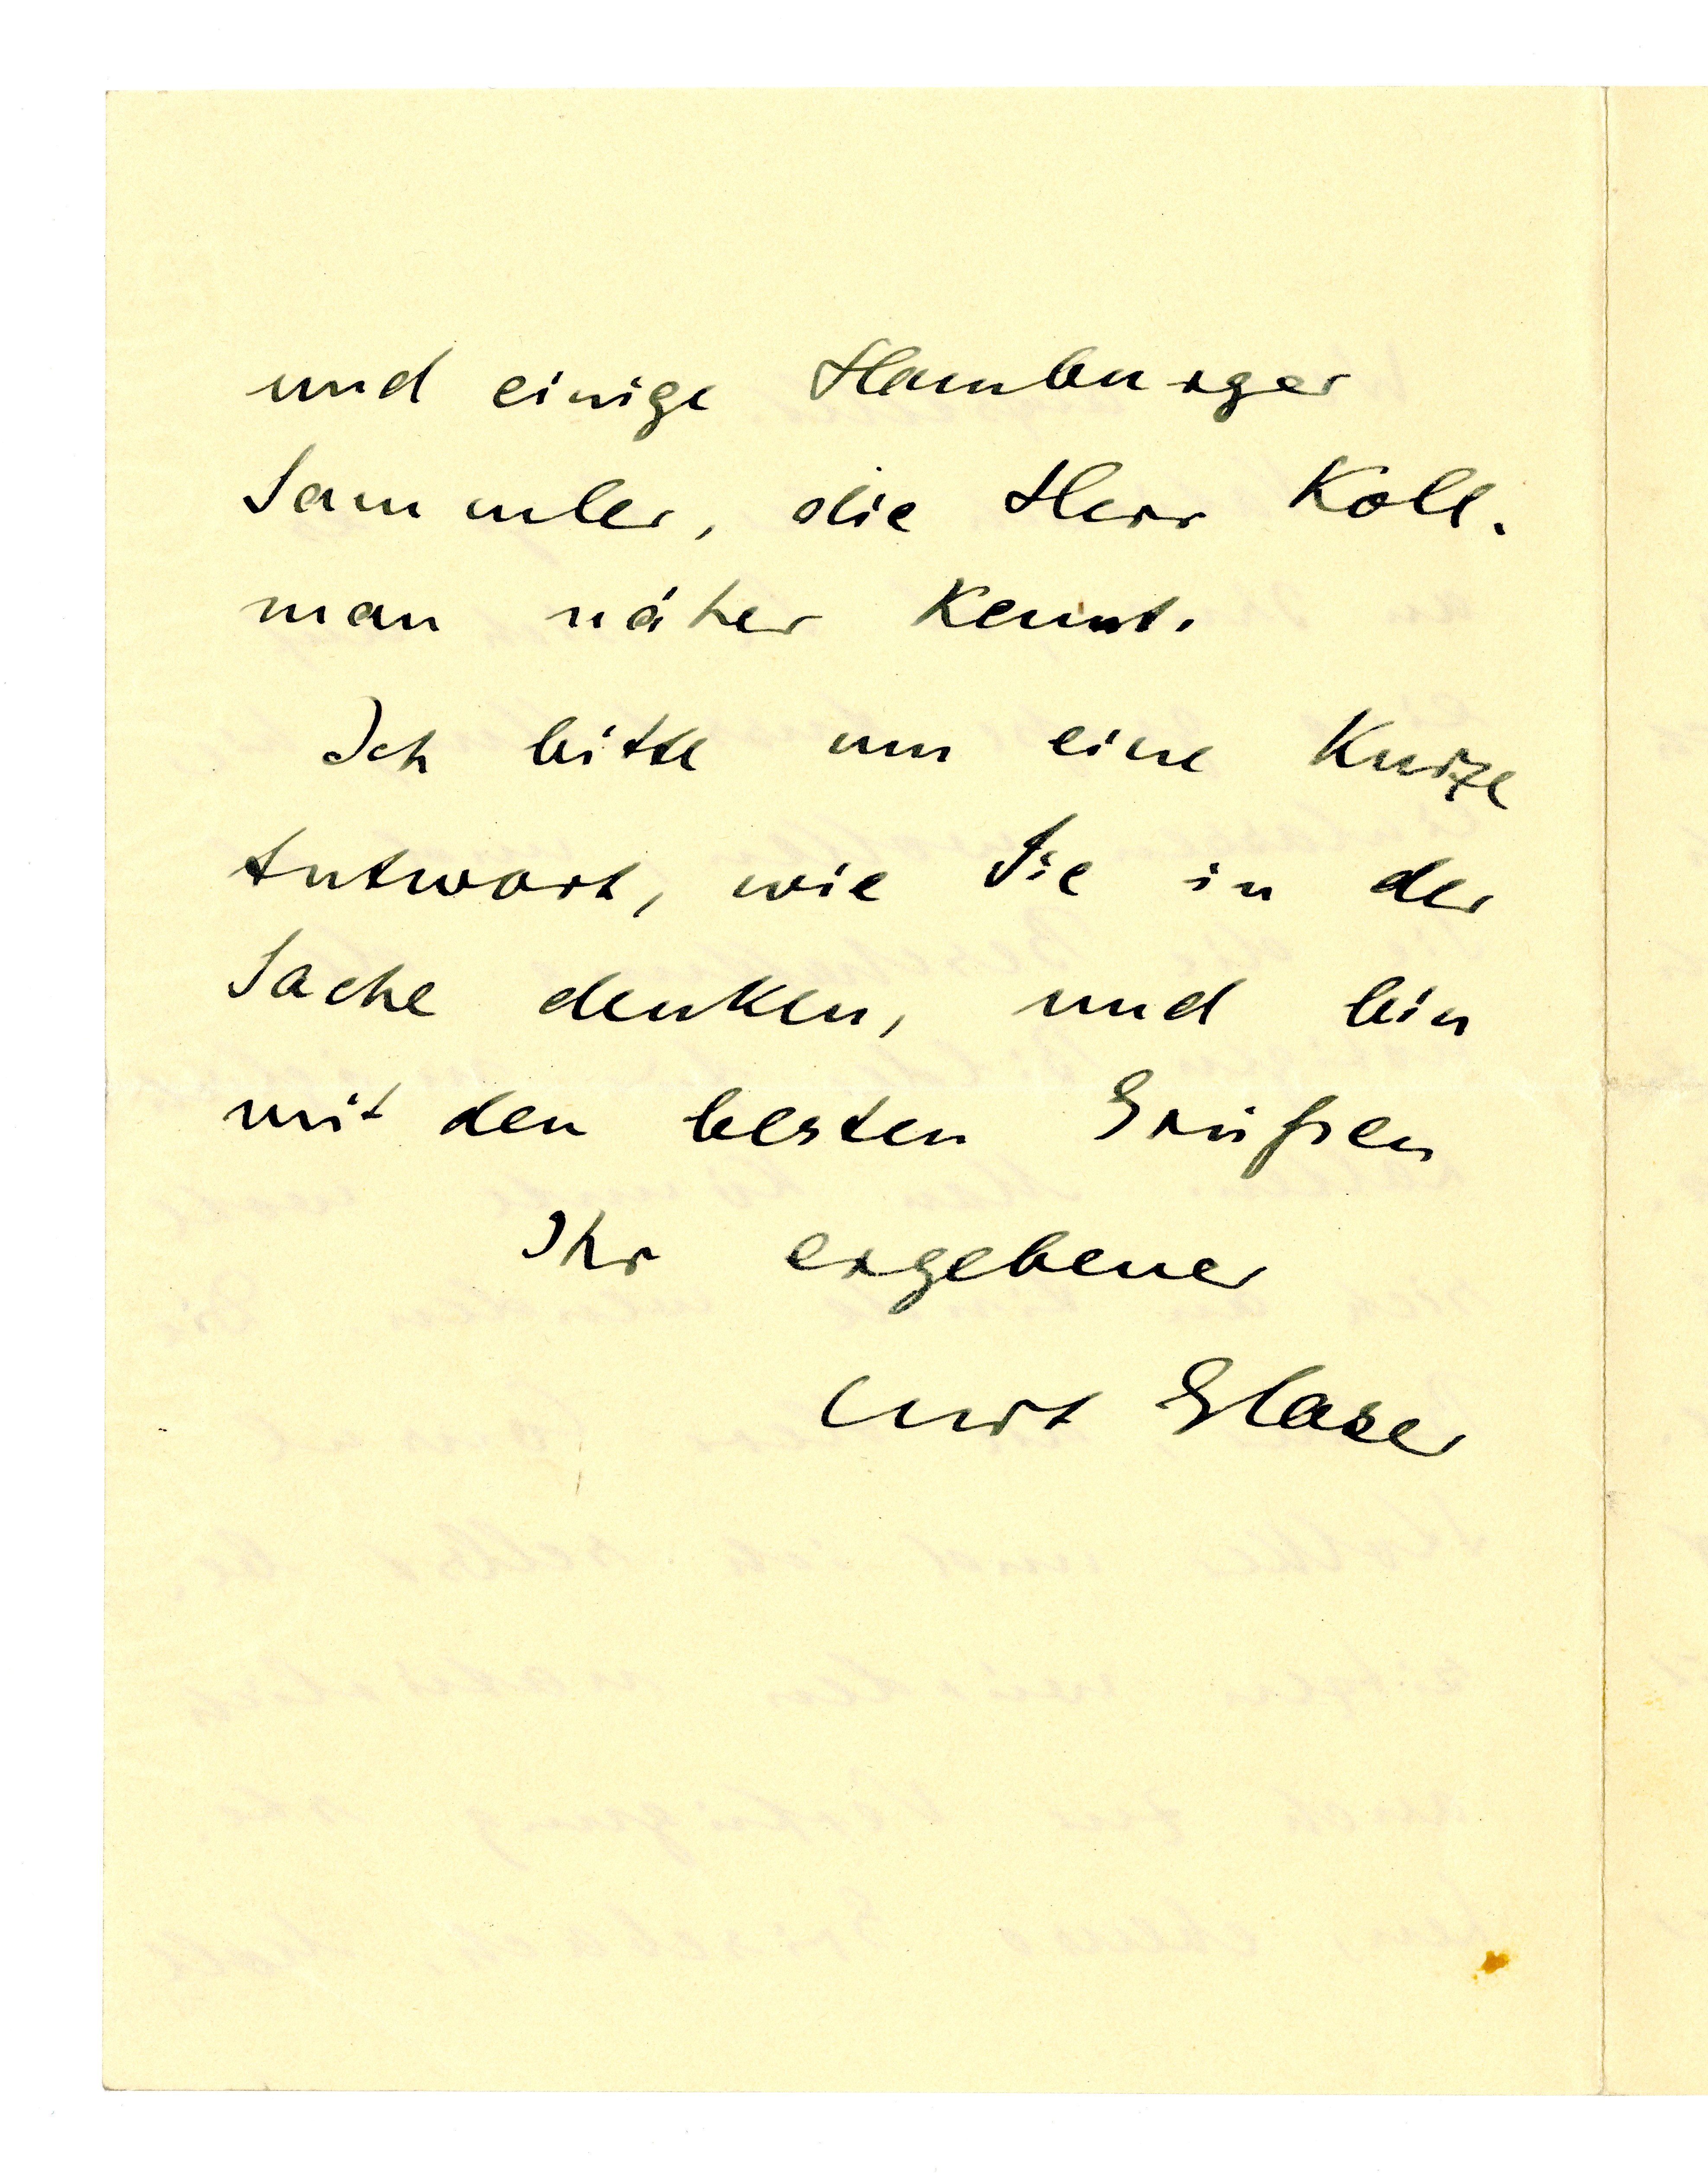 und einige Hamburger
Sammler, die Herr Koll-
man näher kennt.
Ich bitte um eine kurze
Antwort, wie Sie in der
Sache denken, und bin
mit den besten Grüßen
Ihr ergebener
Curt Glaser